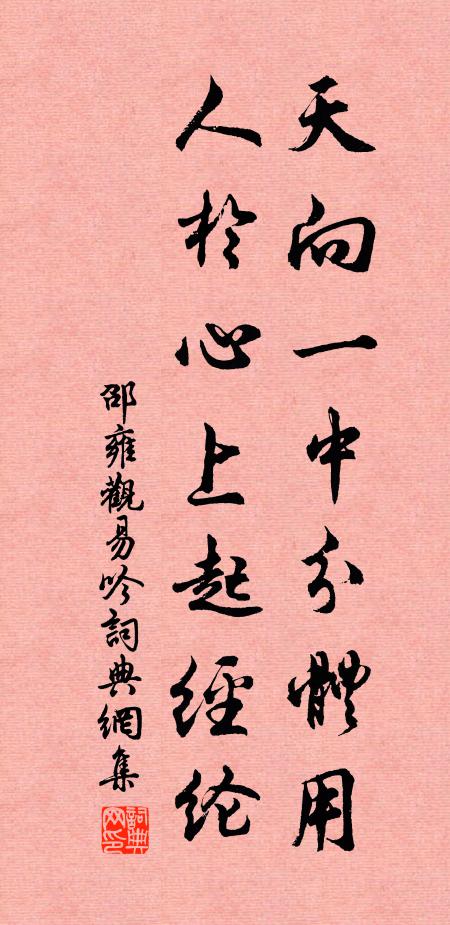 天向一中分體用
人於心上起經纶
邵雍觀易吟詞典網集
詞典网印